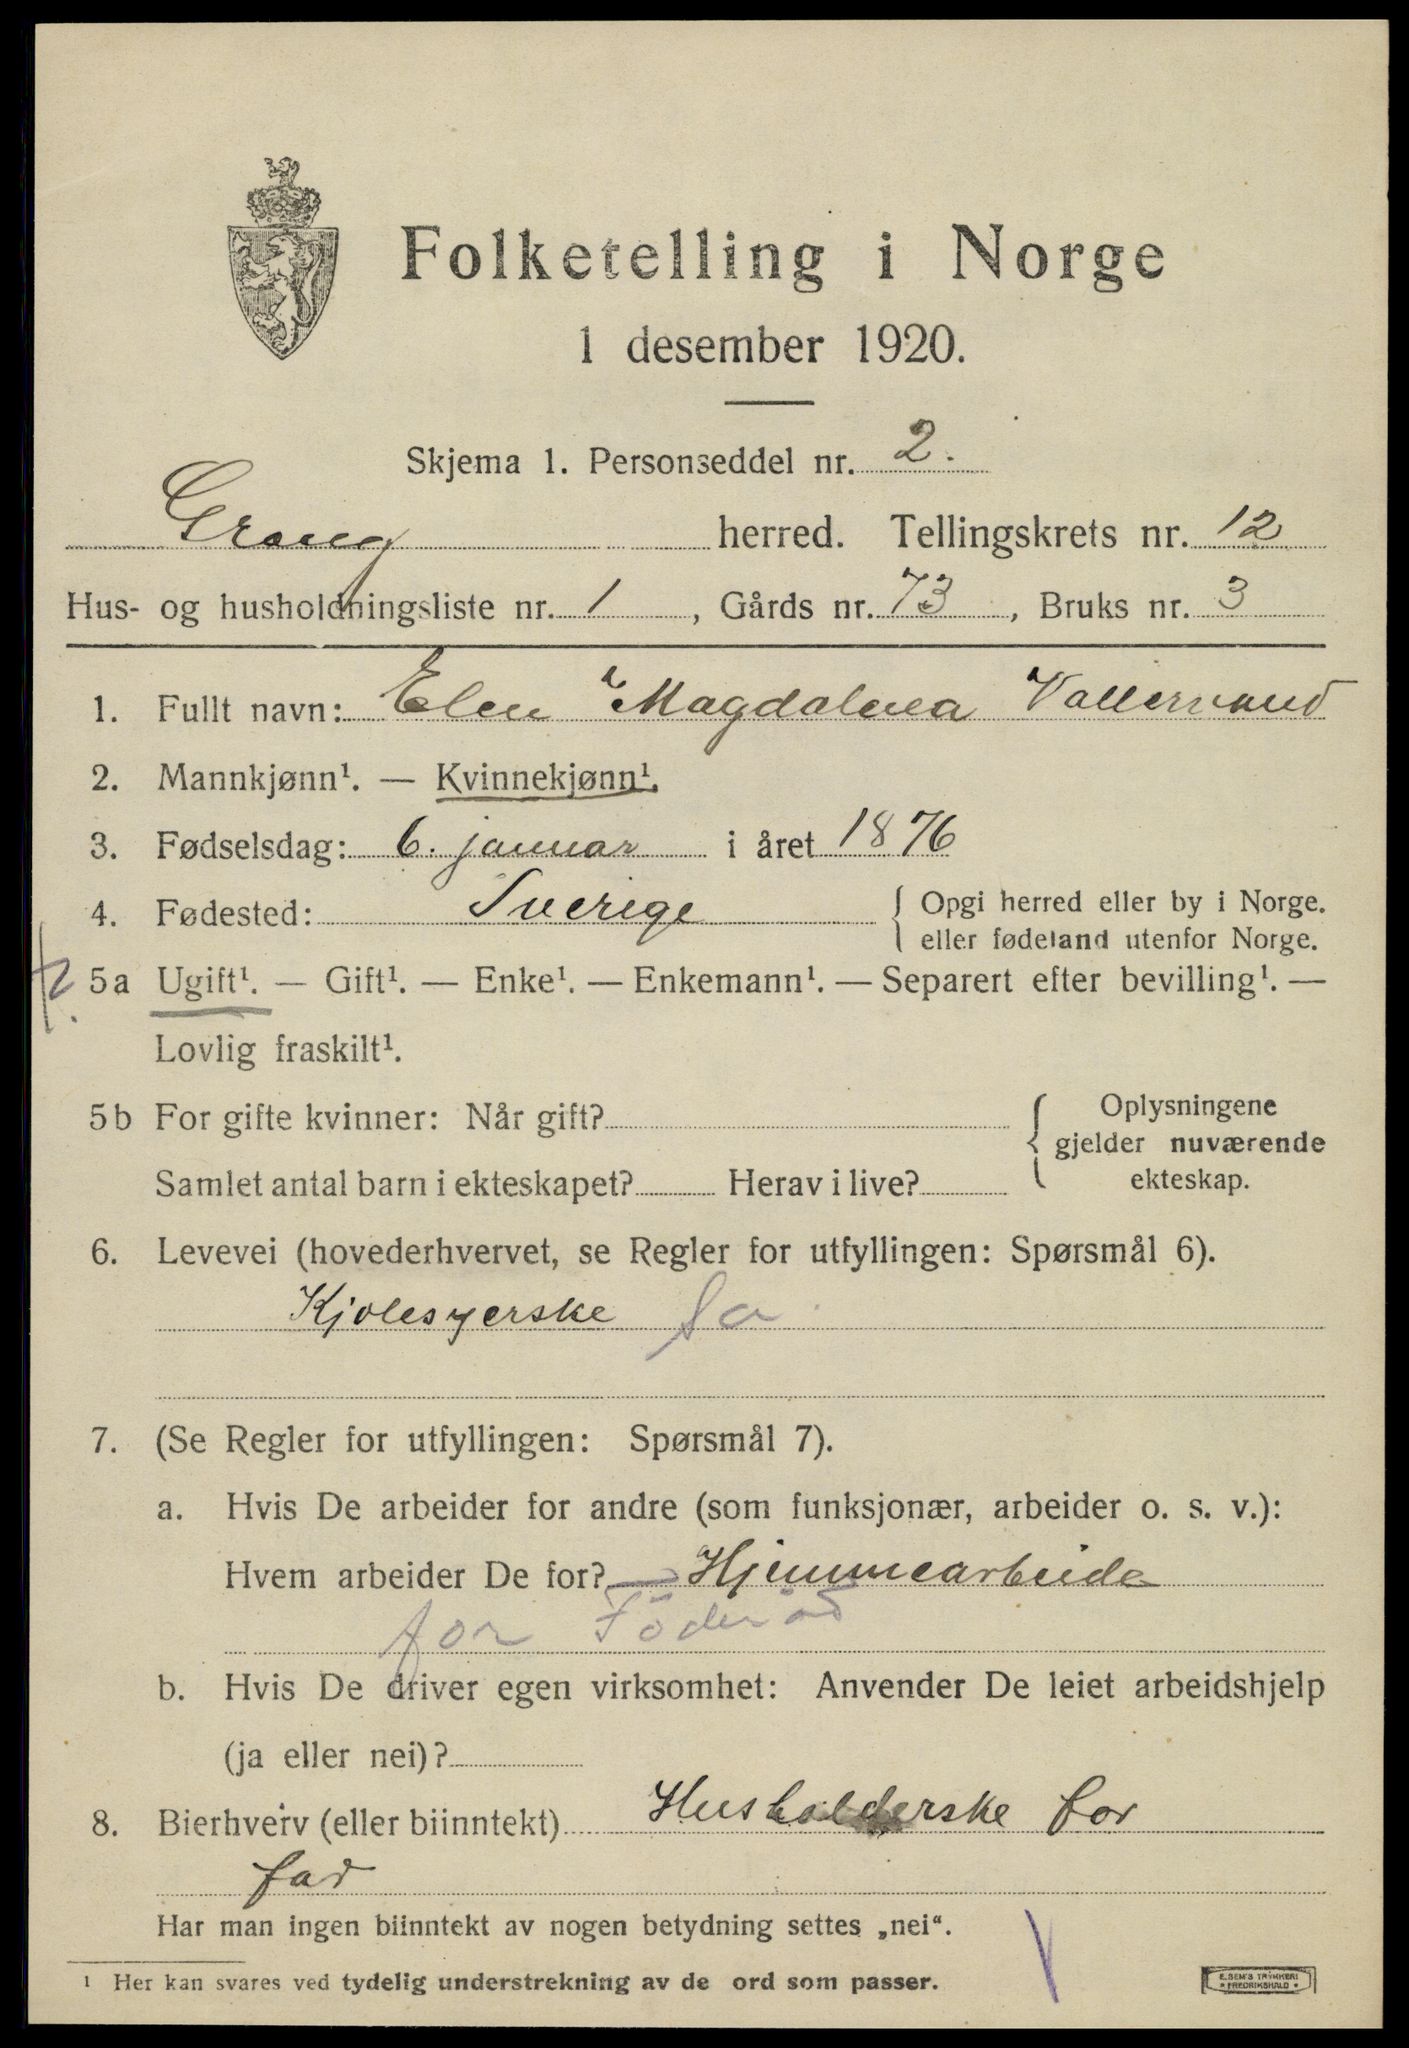 Folketelling i Norge
1 desember 1920.
Skjema 1. Personseddel nr. 2.
Grong herred. Tellingskrets nr. 12
Hus- og husholdningsliste nr. 1, Gårds nr. 73, Bruks nr. 3
1. Fullt navn: Elen Magdalena Vallervand
2. Mannkjønn¹. — Kvinnekjønn¹.
3. Fødselsdag: 6. januar i året 1876
4. Fødested: Sverige { Opgi herred eller by i Norge.
eller fødeland utenfor Norge.
5a Ugift¹. — Gift¹. — Enke¹. — Enkemann¹. — Separert efter bevilling¹. —
Lovlig fraskilt¹.
5b For gifte kvinner: Når gift? { Oplysningene
gjelder nuværende
Samlet antal barn i ekteskapet? Herav i live? ekteskap.
6. Levevei (hovederhvervet, se Regler for utfyllingen: Spørsmål 6).
Kjolesyerske
7. (Se Regler for utfyllingen: Spørsmål 7).
a. Hvis De arbeider for andre (som funksjonær, arbeider o. s. v.):
Hvem arbeider De for? — Hjemmearbeide
for Föderåd
b. Hvis De driver egen virksomhet: Anvender De leiet arbeidshjelp
(ja eller nei)?
8. Bierhverv (eller biinntekt) Husholderske for
far
Har man ingen biinntekt av nogen betydning settes „nei“.
¹ Her kan svares ved tydelig understrekning av de ord som passer.
E. SEM'S TRYKKERI
* FREDRIKSHALD *